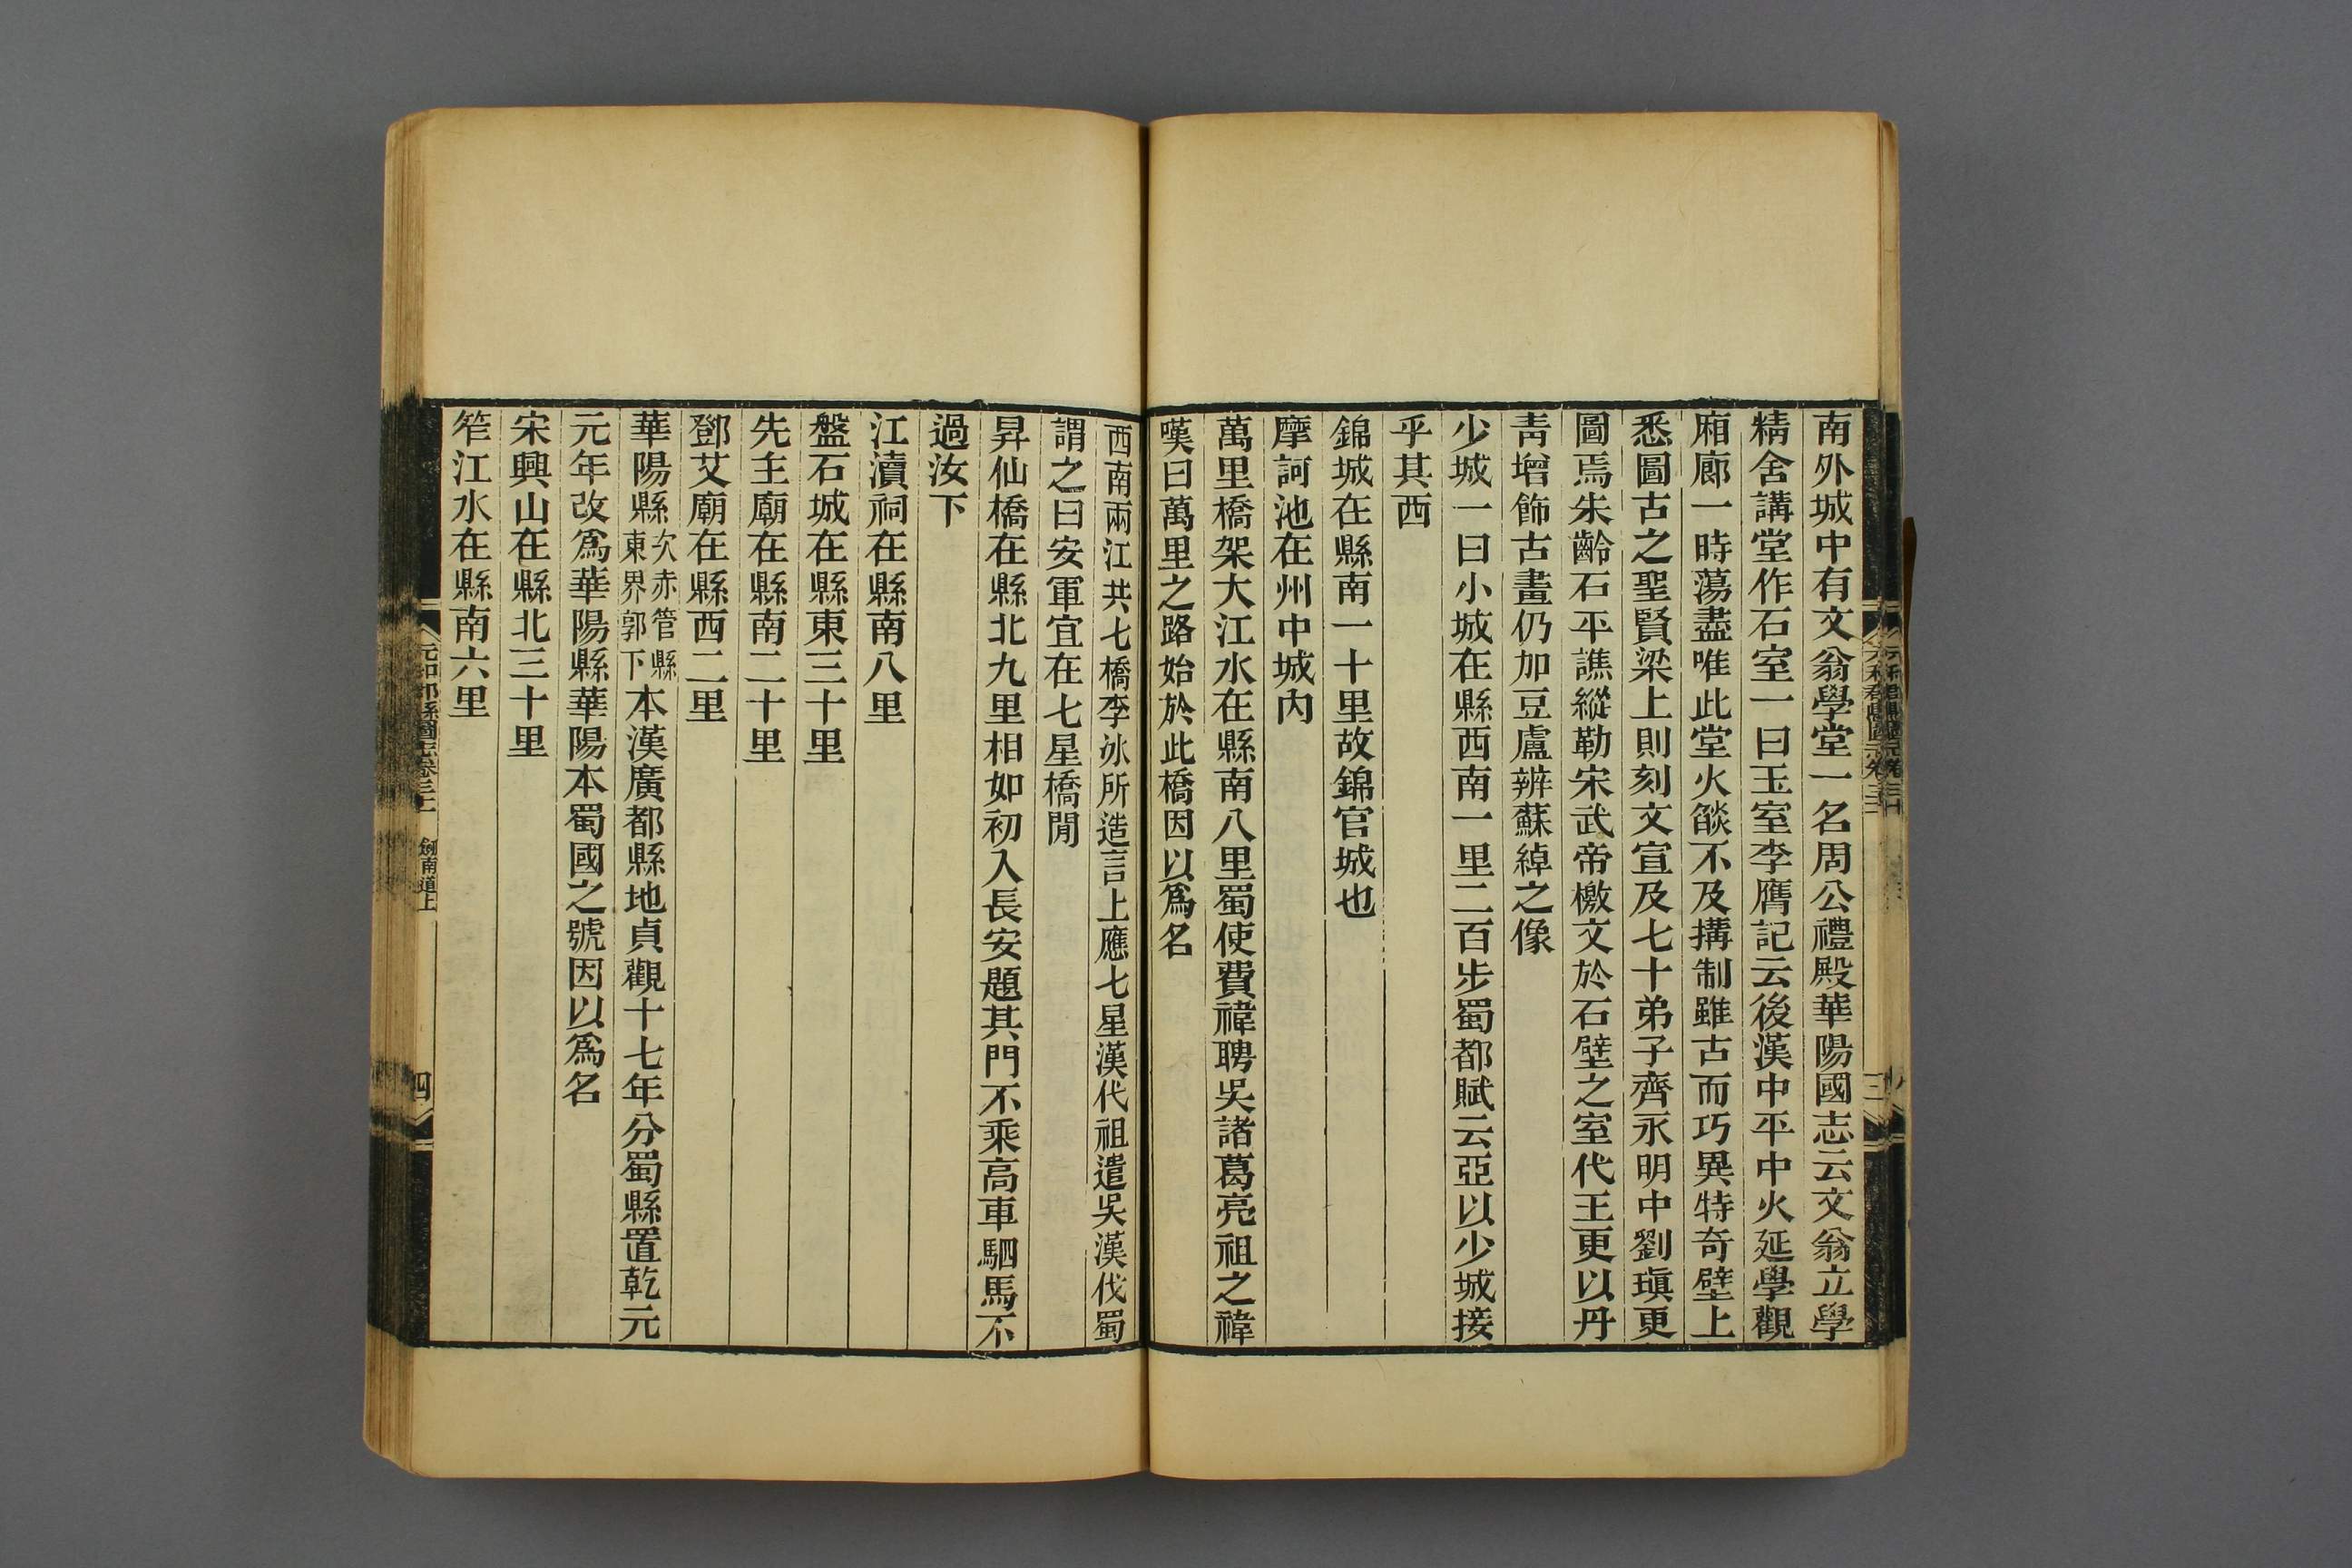 南外城中有文翁學堂一名周公禮殿華陽國志云文翁立學
精舍講堂作石室一曰玉室李膺記云後漢中平中火延學觀
廂廊一時蕩盡唯此堂火燄不及搆制雖古而巧異特奇壁上
悉圖古之聖賢梁上則刻文宣及七十弟子齊永明中劉瑱更
圖焉朱齡石平譙縱勒宋武帝檄文於石壁之室代王更以丹
青增飾古畫仍加豆盧辨蘇綽之像
少城一曰小城在縣西南一里二百步蜀都賦云亞以少城接
乎其西
錦城在縣南一十里故錦官城也
摩訶池在州中城內
萬里橋架大江水在縣南八里蜀使費禕聘吳諸葛亮祖之禕
嘆曰萬里之路始於此橋因以爲名
西南兩江共七橋李冰所造言上應七星漢代祖遣吳漢伐蜀
謂之曰安軍宜在七星橋閒
昇仙橋在縣北九里相如初入長安題其門不乘高車駟馬不
過汝下
江瀆祠在縣南八里
盤石城在縣東三十里
先主廟在縣南二十里
鄧艾廟在縣西二里
華陽縣次赤管縣東界郭下本漢廣都縣地貞觀十七年分蜀縣置乾元
元年改爲華陽縣華陽本蜀國之號因以爲名
宋興山在縣北三十里
笮江水在縣南六里
元和郡縣圖志卷三十一 劍南道上
四